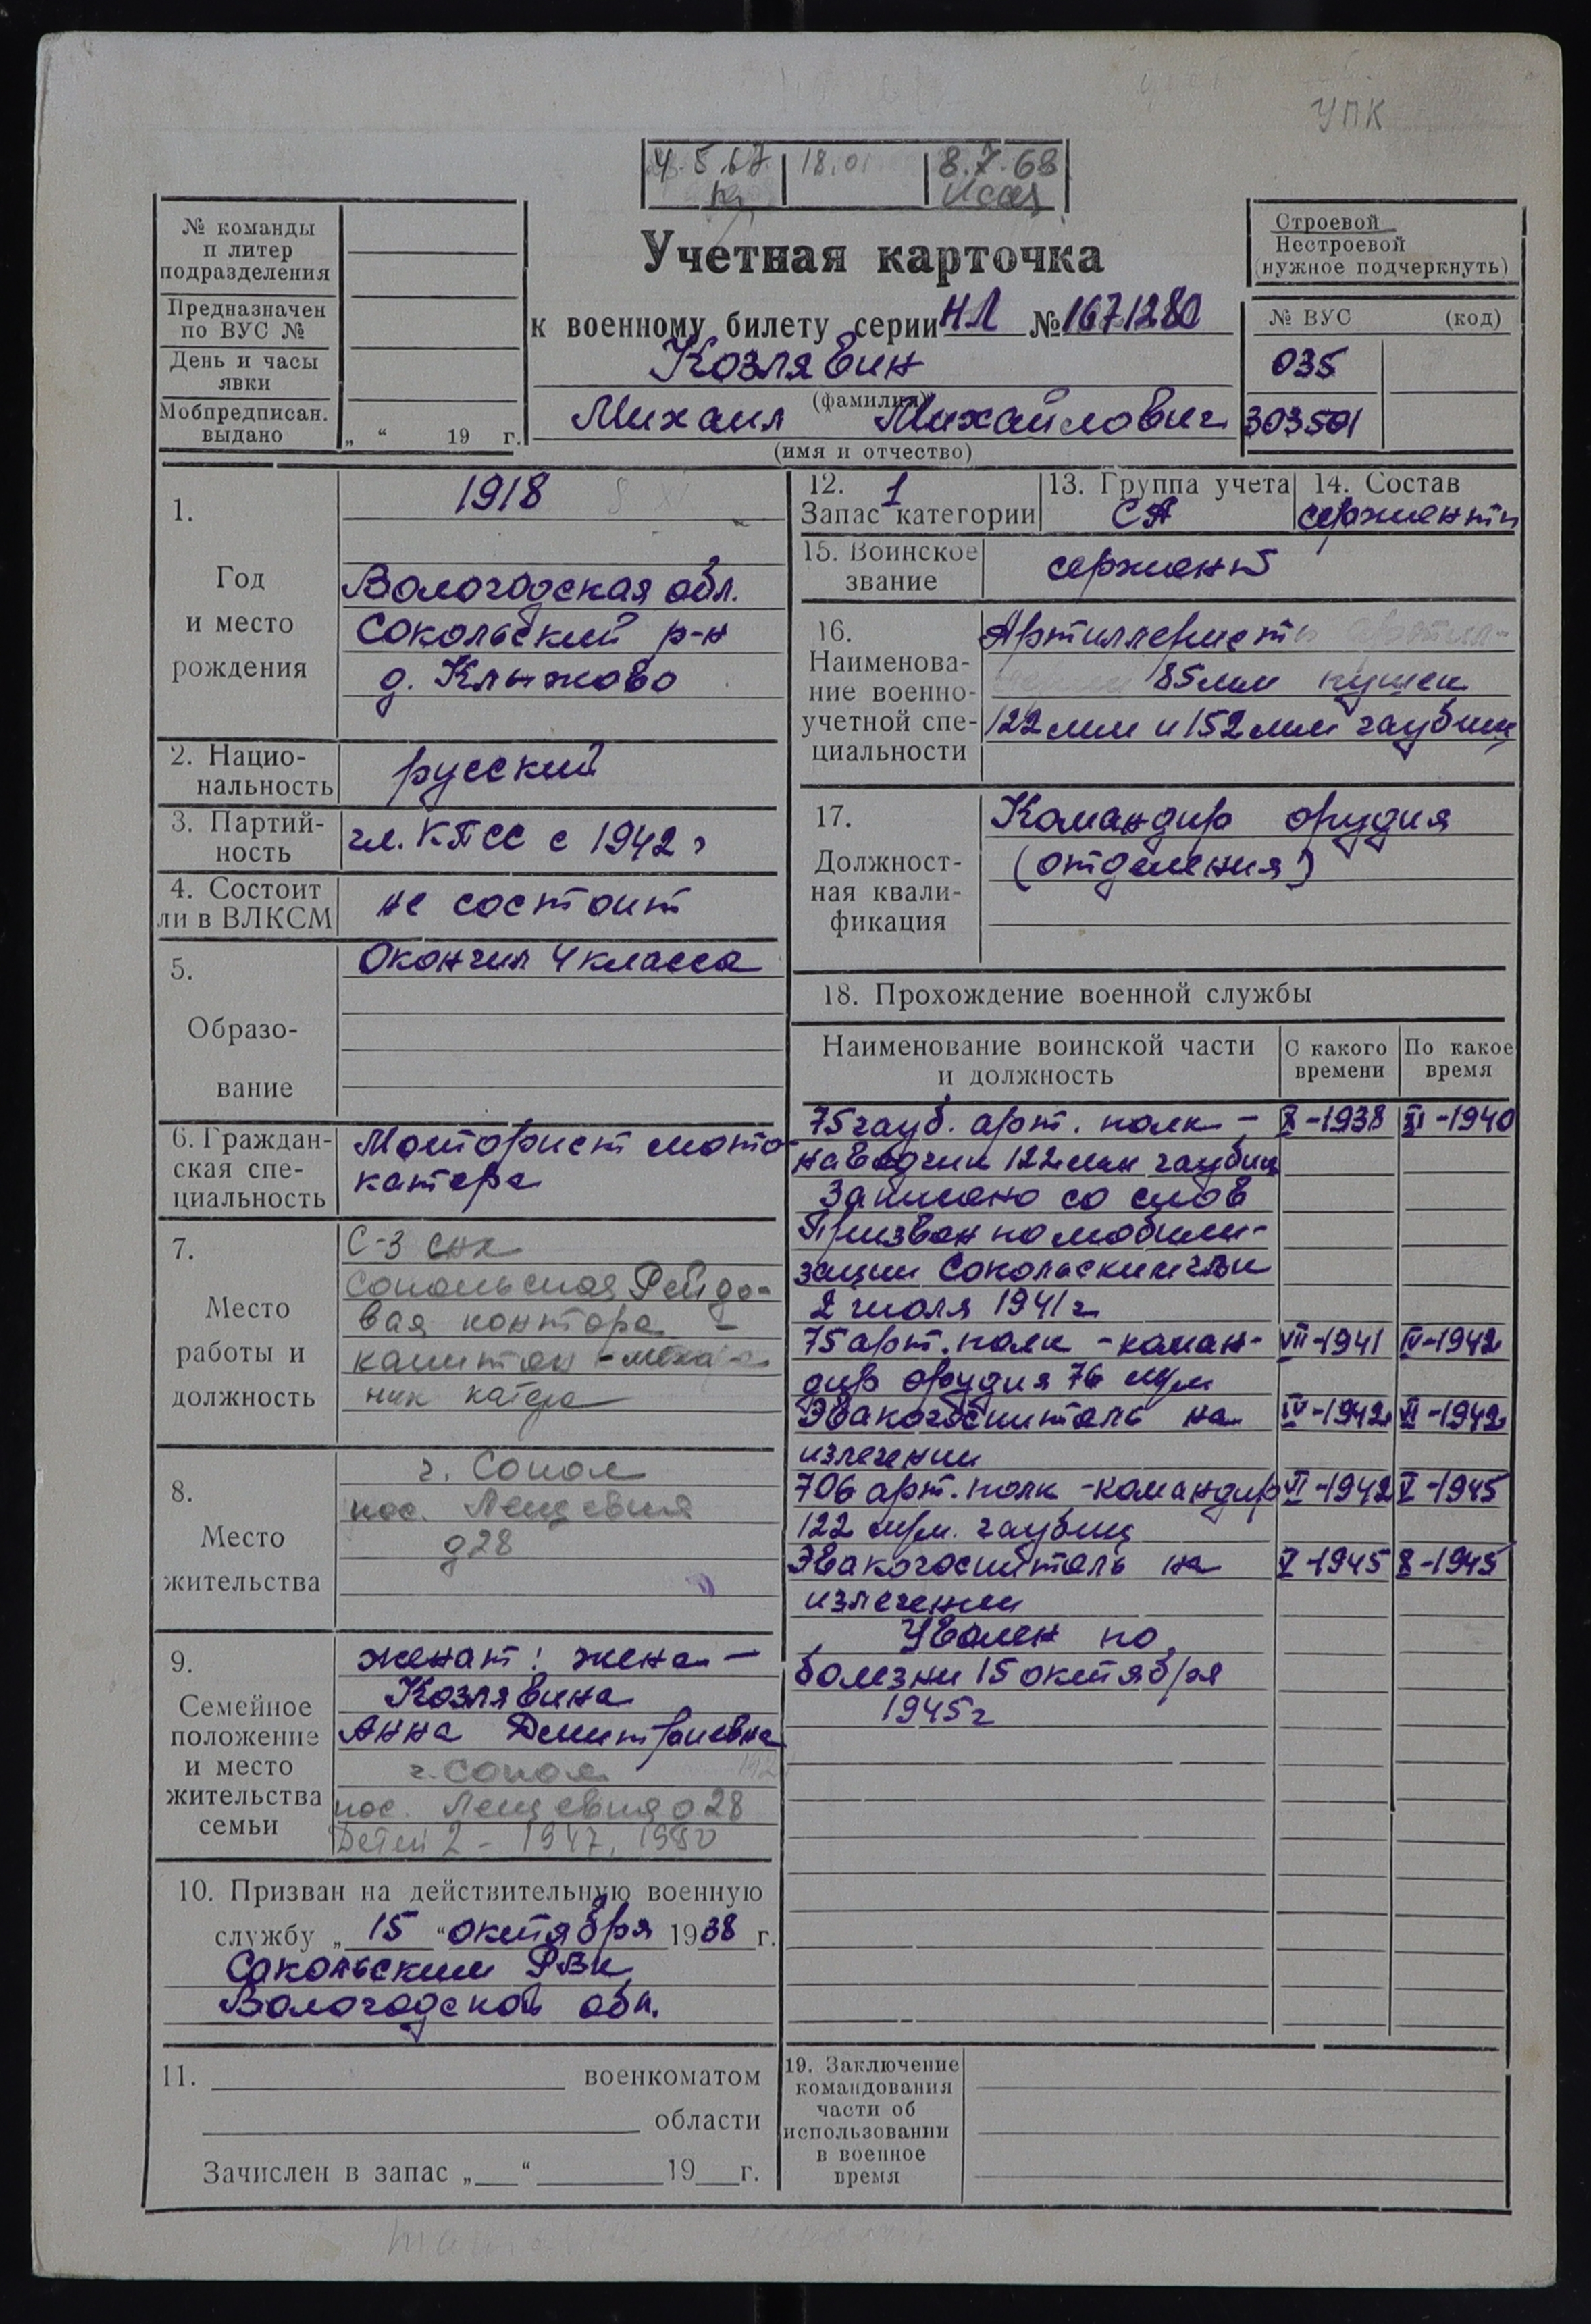 УПК
4.5.67 18.01 8.7.68
№ команды
и литер
подразделения
Предназначен
по ВУС №
День и часы
явки
Мобпредписан.
выдано „ “ 19 г.
Учетная карточка
к военному билету серии НЛ № 1671280
Козлявин
(фамилия)
Михаил Михайлович
(имя и отчество)
Строевой
Нестроевой
(нужное подчеркнуть)
№ ВУС (код)
035
303501
1.
Год
и место
рождения
1918
Вологодская обл.
Сокольский р-н
д. Клыжово
2. Нацио-
нальность
русский
3. Партий-
ность
чл. КПСС с 1942 г
4. Состоит
ли в ВЛКСМ
не состоит
5.
Образо-
вание
Окончил 4 класса
6. Граждан-
ская спе-
циальность
Моторист мото-
катера
7.
Место
работы и
должность
С-3 СНК
Сокольская Рейдо-
вая контора -
капитан - меха-
ник катера
8.
Место
жительства
г. Сокол
пос. Лещевка
д 28
9.
Семейное
положение
и место
жительства
семьи
женат: жена -
Козлявина
Анна Дмитриевна
г. Сокол
пос. Лещевка д 28
Детей 2 - 1947, 1950
10. Призван на действительную военную
службу „ 15 “ октября 1938 г.
Сокольским РВК
Вологодской обл.
11. военкоматом
области
Зачислен в запас „ “ 19 г.
12. 1
Запас категории
13. Группа учета
СА
14. Состав
сержанты
15. Воинское
звание
сержант
16.
Наименова-
ние военно-
учетной спе-
циальности
Артиллеристы
85 мм пушек
122 мм и 152 мм гаубиц
17.
Должност-
ная квали-
фикация
Командир орудия
(отделения)
18. Прохождение военной службы
Наименование воинской части
и должность
С какого
времени
По какое
время
75 гауб. арт. полк - X-1938 XI-1940
наводчик 122 мм гаубиц
Записано со слов
Призван по мобили-
зации Сокольским РВК
2 июля 1941 г
75 арт. полк - коман- VII-1941 IV-1942
дир орудия 76 мм
Эвакогоспиталь на IV-1942 VI-1942
излечении
706 арт. полк - командир VI-1942 V-1945
122 мм. гаубиц
Эвакогоспиталь на V-1945 X-1945
излечении
Уволен по
болезни 15 октября
1945 г
19. Заключение
командования
части об
использовании
в военное
время